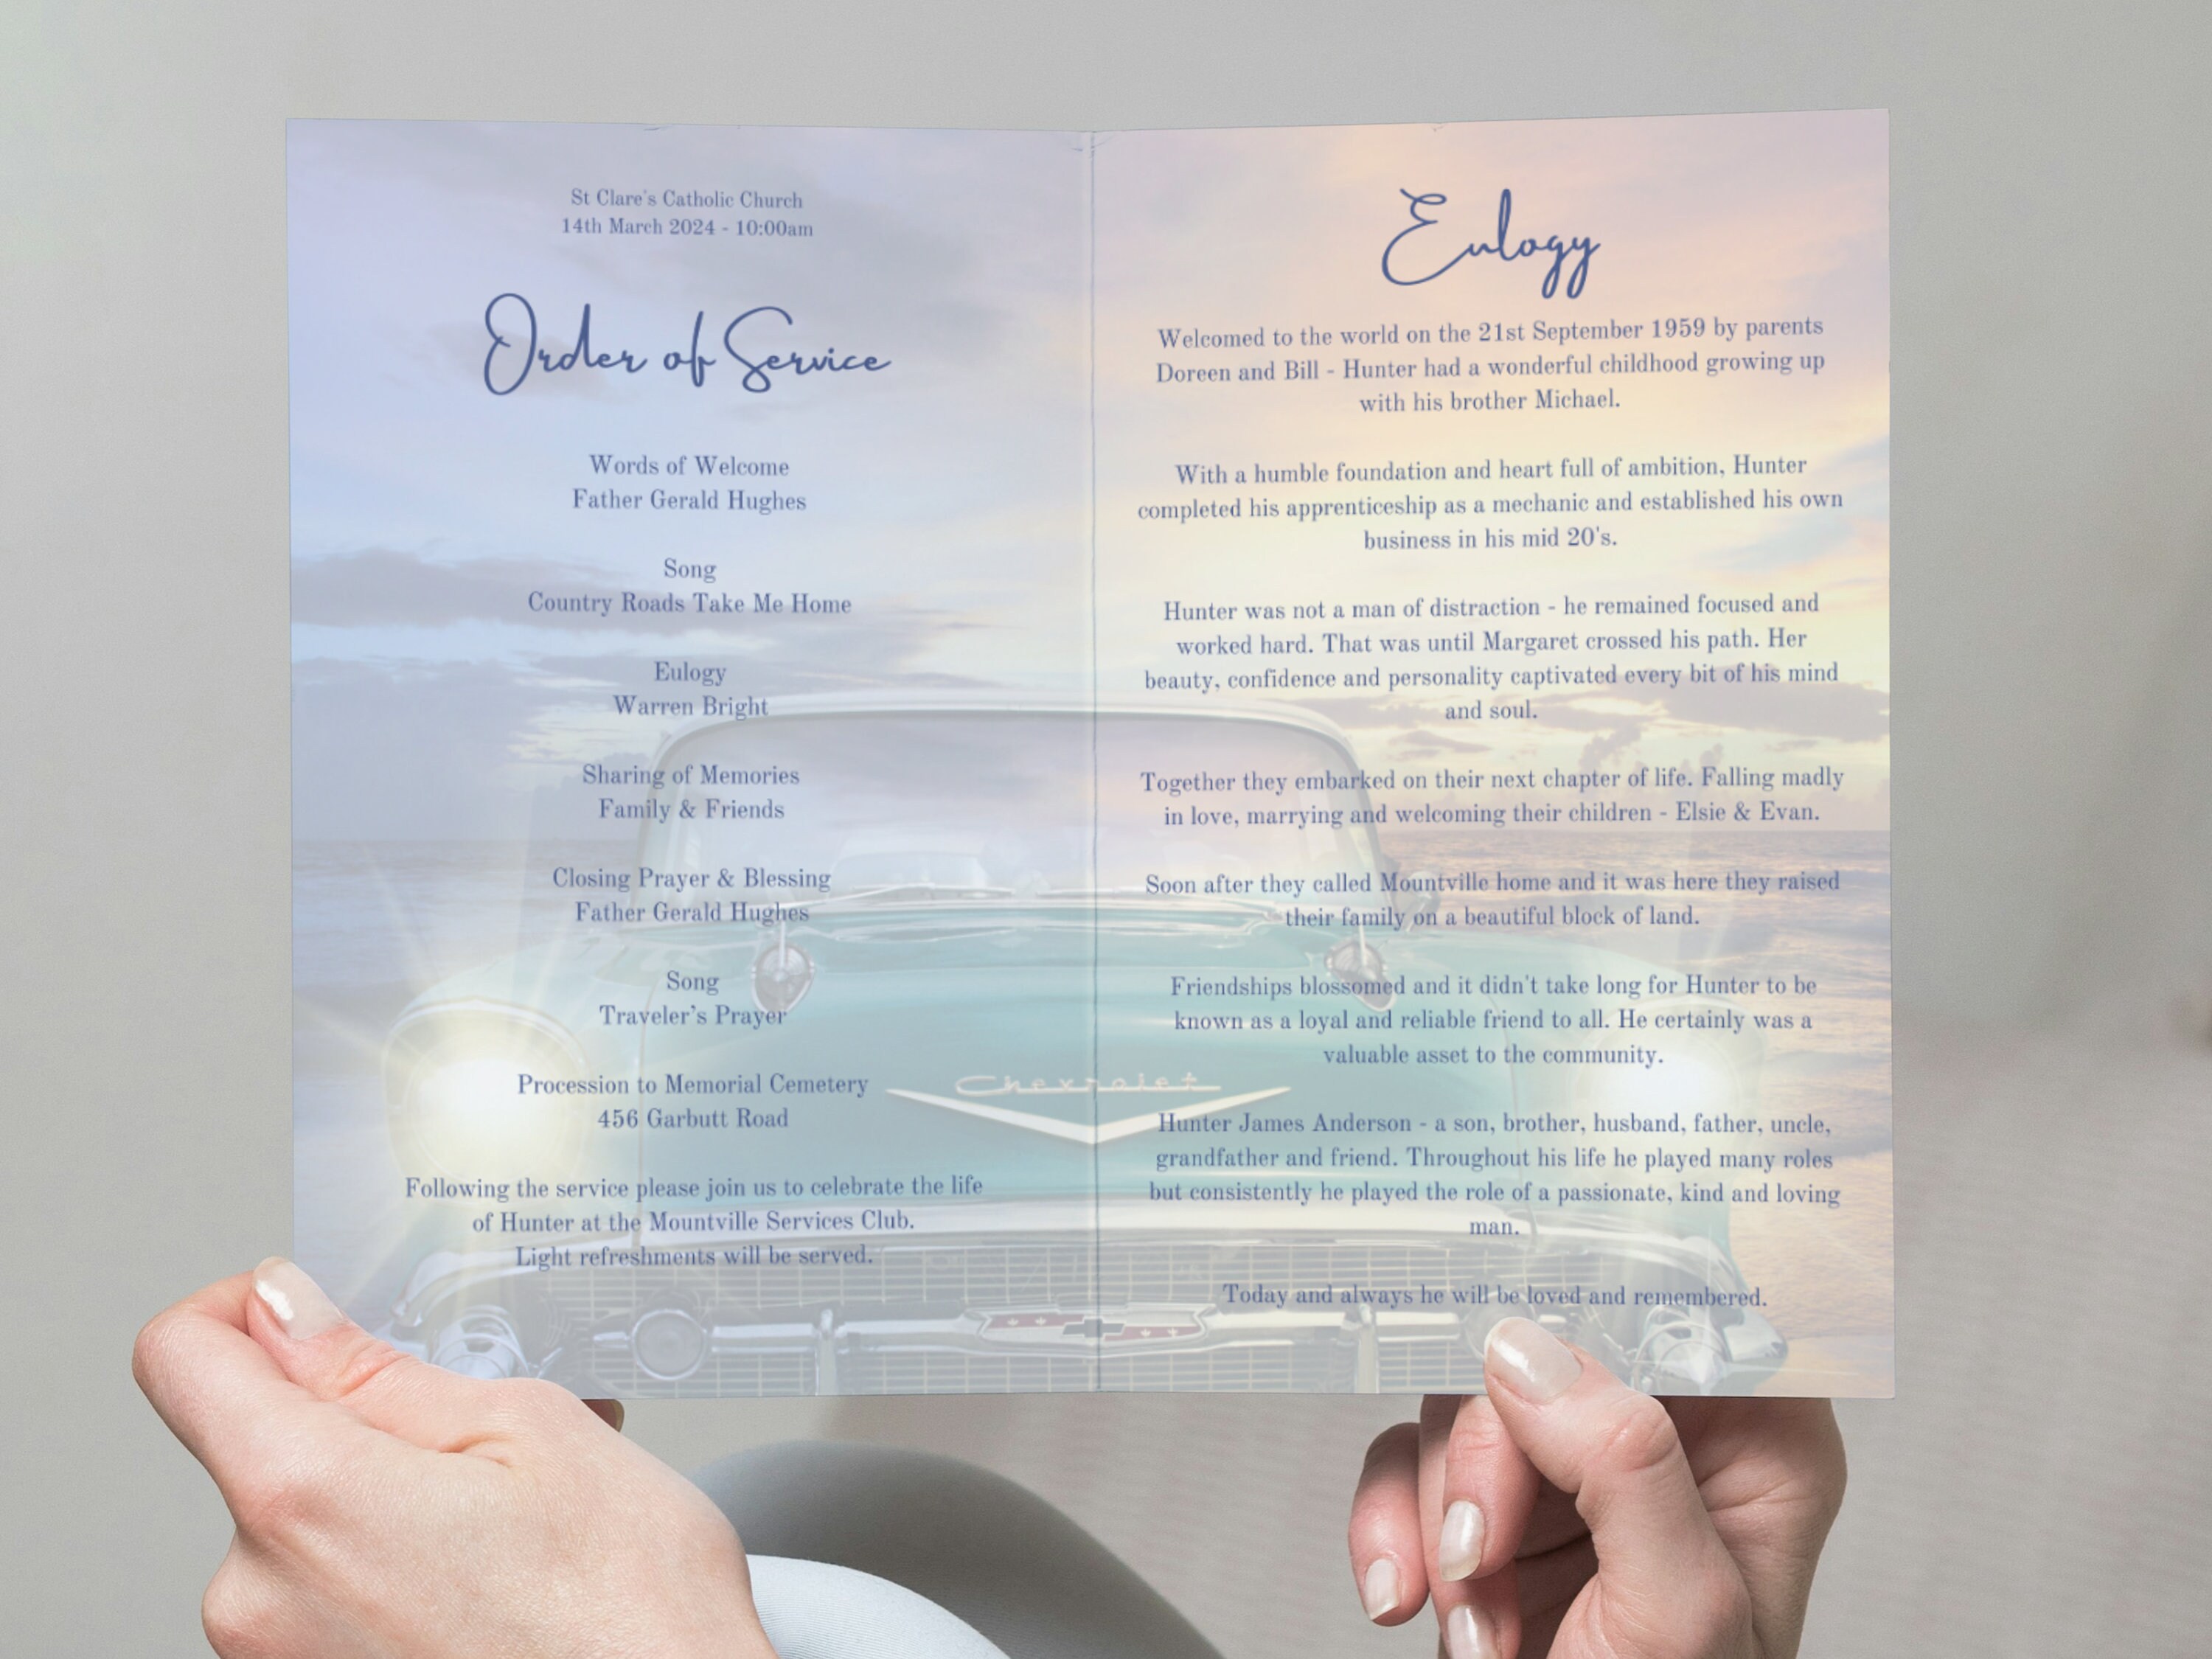 St Clare's Catholic Church
14th March 2024 - 10:00am
Order of Service
Words of Welcome
Father Gerald Hughes
Song
Country Roads Take Me Home
Eulogy
Warren Bright
Sharing of Memories
Family & Friends
Closing Prayer & Blessing
Father Gerald Hughes
Song
Traveler's Prayer
Procession to Memorial Cemetery
456 Garbutt Road
Following the service please join us to celebrate the life
of Hunter at the Mountville Services Club.
Light refreshments will be served.
Chevrolet
Eulogy
Welcomed to the world on the 21st September 1959 by parents
Doreen and Bill - Hunter had a wonderful childhood growing up
with his brother Michael.
With a humble foundation and heart full of ambition, Hunter
completed his apprenticeship as a mechanic and established his own
business in his mid 20's.
Hunter was not a man of distraction - he remained focused and
worked hard. That was until Margaret crossed his path. Her
beauty, confidence and personality captivated every bit of his mind
and soul.
Together they embarked on their next chapter of life. Falling madly
in love, marrying and welcoming their children - Elsie & Evan.
Soon after they called Mountville home and it was here they raised
their family on a beautiful block of land.
Friendships blossomed and it didn't take long for Hunter to be
known as a loyal and reliable friend to all. He certainly was a
valuable asset to the community.
Hunter James Anderson - a son, brother, husband, father, uncle,
grandfather and friend. Throughout his life he played many roles
but consistently he played the role of a passionate, kind and loving
man.
Today and always he will be loved and remembered.